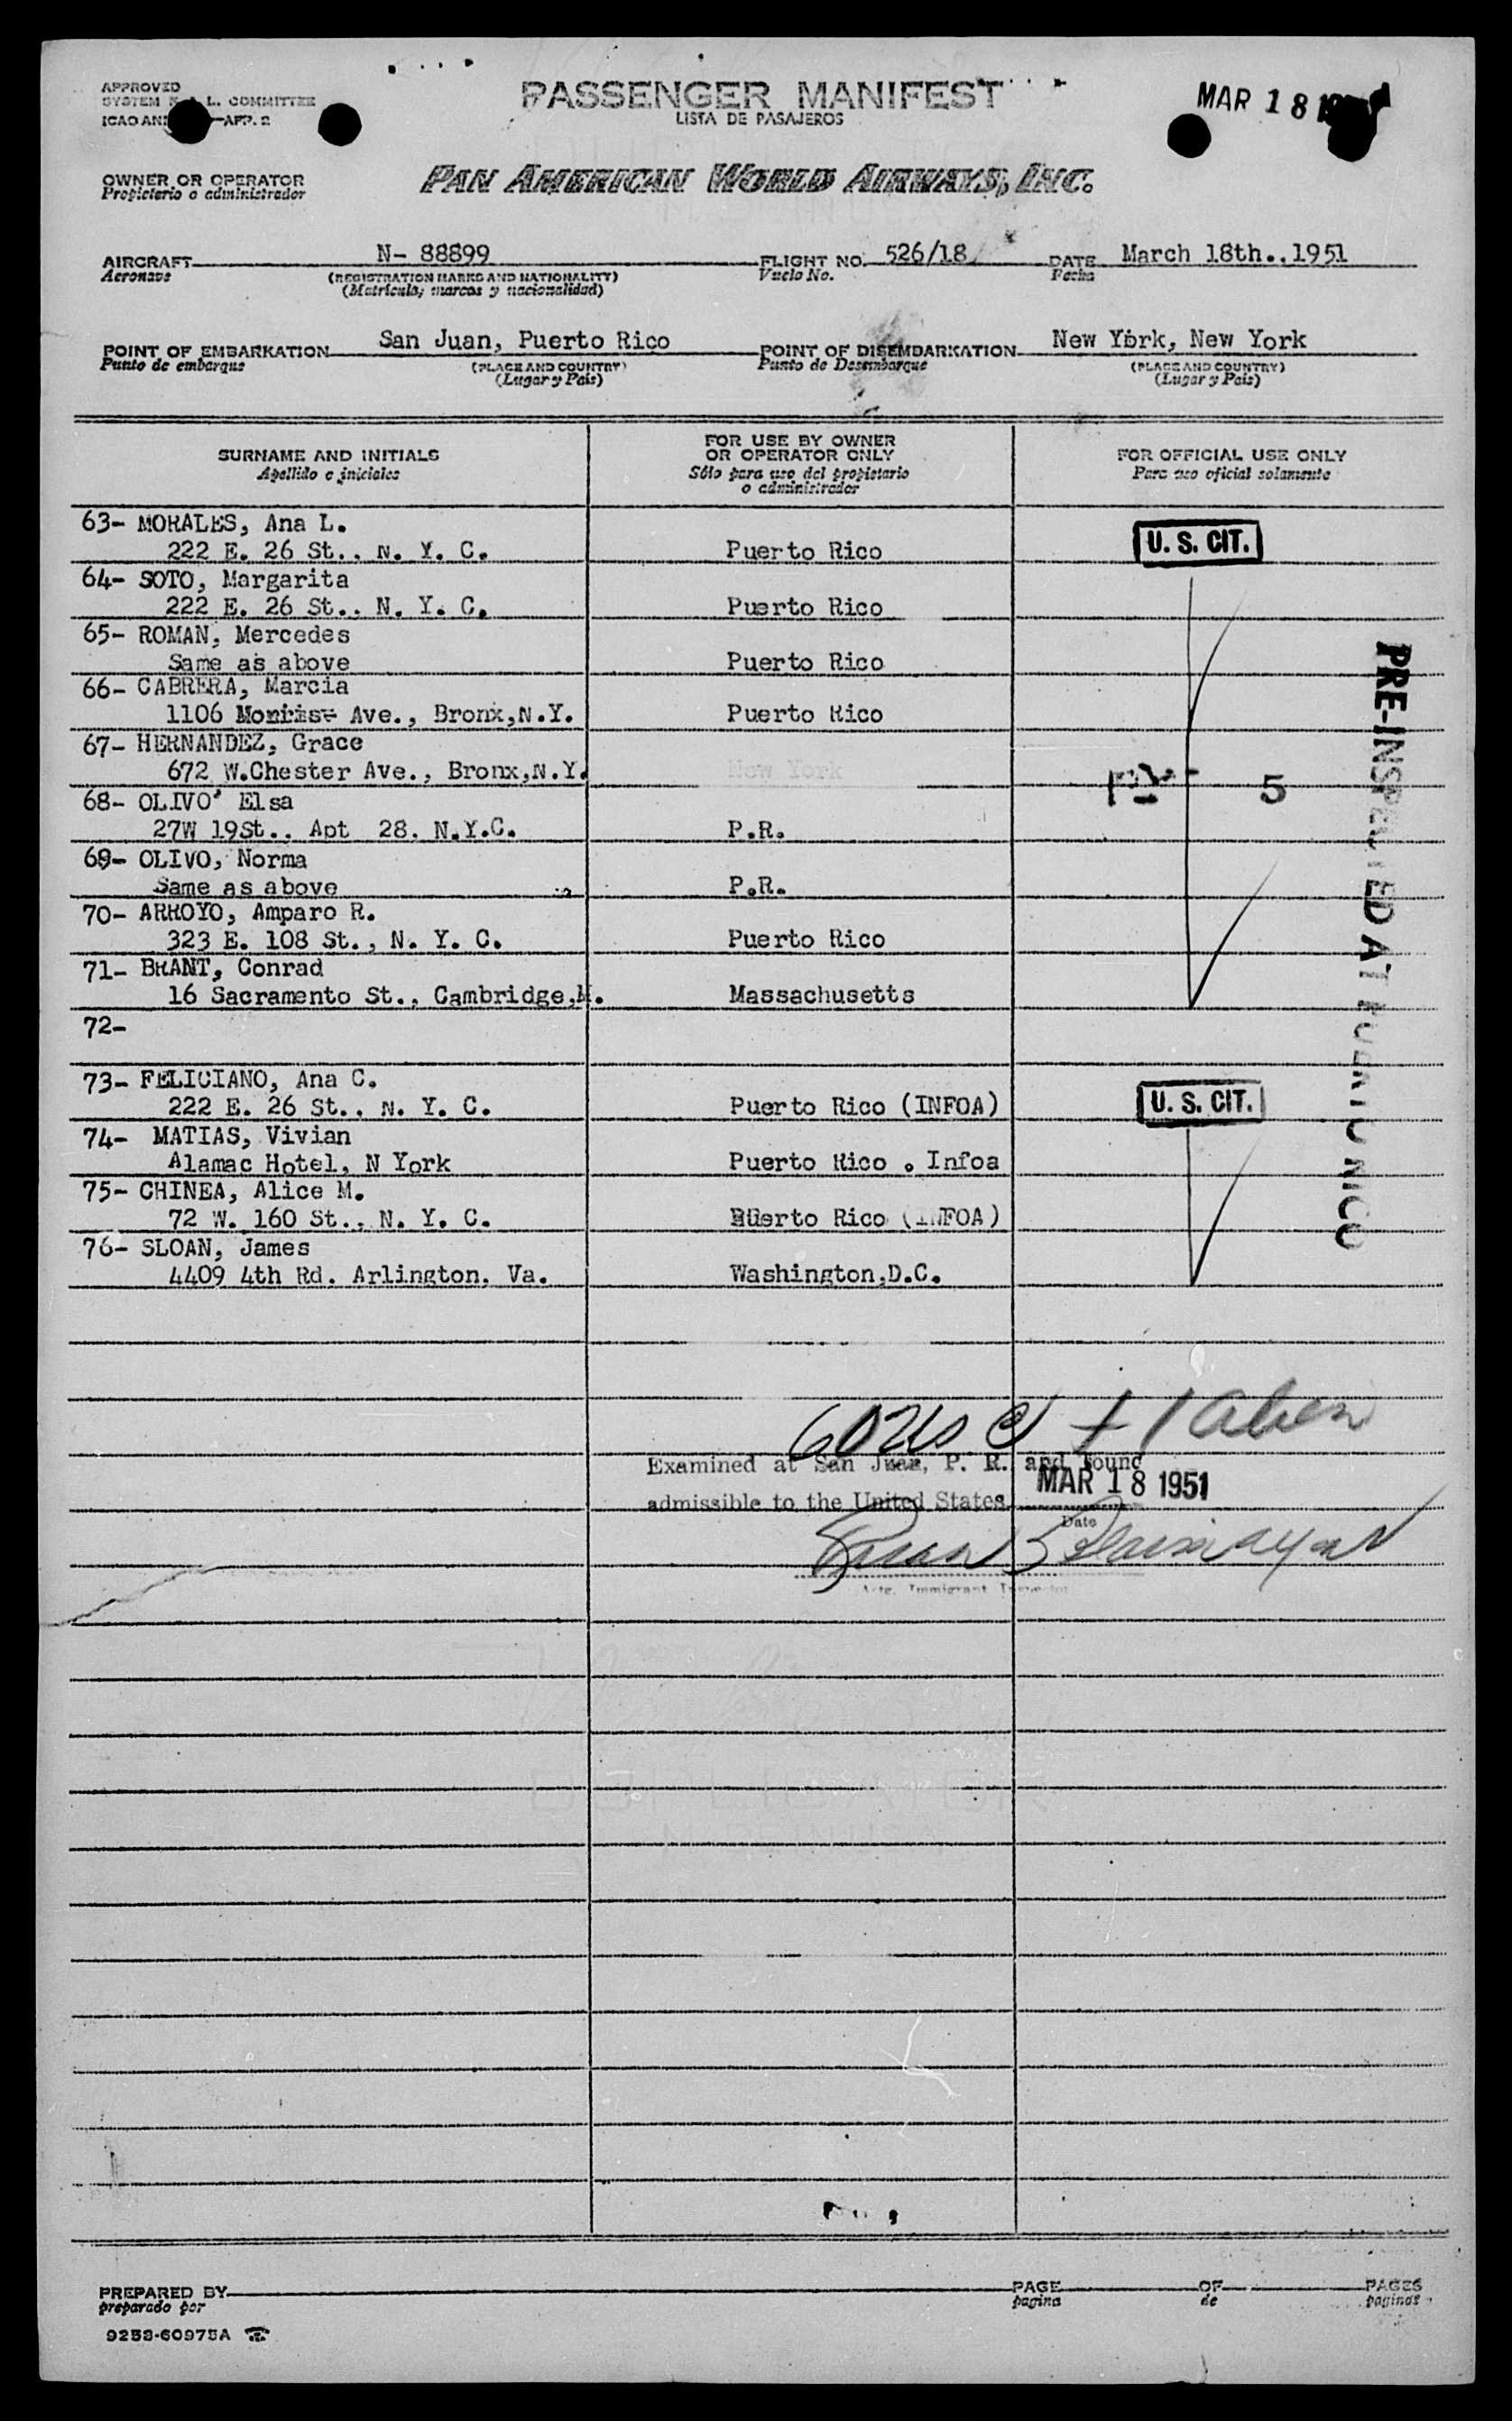 APPROVED
SYSTEM L. COMMITTEE
ICAO APP. 2
PASSENGER MANIFEST
LISTA DE PASAJEROS
MAR 18
OWNER OR OPERATOR
Propietario o administrador
PAN AMERICAN WORLD AIRWAYS, INC.
AIRCRAFT N- 88899 FLIGHT NO. 526/18 DATE March 18th., 1951
Aeronave (REGISTRATION MARKS AND NATIONALITY) Vuelo No. Fecha
(Matricula, marcas y nacionalidad)
POINT OF EMBARKATION San Juan, Puerto Rico POINT OF DISEMBARKATION New York, New York
Punto de embarque (PLACE AND COUNTRY) Punto de Desembarque (PLACE AND COUNTRY)
(Lugar y Pais) (Lugar y Pais)
SURNAME AND INITIALS FOR USE BY OWNER OR OPERATOR ONLY FOR OFFICIAL USE ONLY
Apellido e iniciales Sólo para uso del propietario o administrador Para uso oficial solamente
63- MORALES, Ana L.
222 E. 26 St., N. Y. C. Puerto Rico U. S. CIT.
64- SOTO, Margarita
222 E. 26 St., N. Y. C. Puerto Rico
65- ROMAN, Mercedes
Same as above Puerto Rico
66- CABRERA, Marcia
1106 Ave., Bronx,N.Y. Puerto Rico
67- HERNANDEZ, Grace
672 W.Chester Ave., Bronx,N.Y. New York
5
68- OLIVO' Elsa
27W 19St., Apt 28. N.Y.C. P.R.
69- OLIVO, Norma
Same as above P.R.
70- ARROYO, Amparo R.
323 E. 108 St., N. Y. C. Puerto Rico
71- BRANT, Conrad
16 Sacramento St., Cambridge,M. Massachusetts
72-
73- FELICIANO, Ana C.
222 E. 26 St., N. Y. C. Puerto Rico (INFOA) U. S. CIT.
74- MATIAS, Vivian
Alamac Hotel, N York Puerto Rico . Infoa
75- CHINEA, Alice M.
72 W. 160 St., N. Y. C. Puerto Rico (INFOA)
76- SLOAN, James
4409 4th Rd. Arlington, Va. Washington,D.C.
PRE-INSPECTED AT PUERTO RICO
60 US C + 1 alien
Examined at San Juan, P. R. and found
admissible to the United States MAR 18 1951
Date
Actg. Immigrant Inspector
PREPARED BY PAGE OF PAGES
preparado por pagina de paginas
9253-60975A